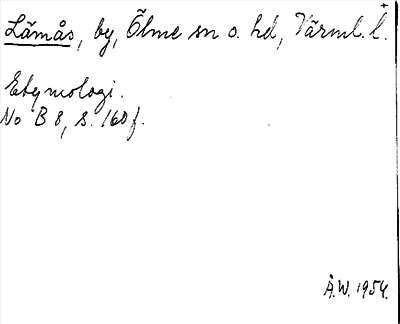 Lämås, by, Ölme sn o. hd, Värml. l.
Etymologi.
No B 8, s. 160 f.
Å.W. 1954.